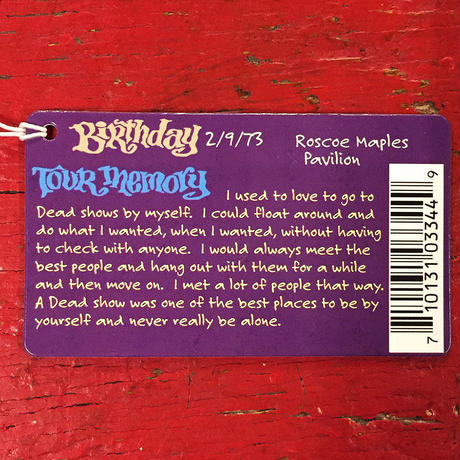 Birthday 2/9/73 Roscoe Maples
Pavilion
Tour Memory
I used to love to go to
Dead shows by myself. I could float around and
do what I wanted, when I wanted, without having
to check with anyone. I would always meet the
best people and hang out with them for a while
and then move on. I met a lot of people that way.
A Dead show was one of the best places to be by
yourself and never really be alone.
7 10131 03344 9